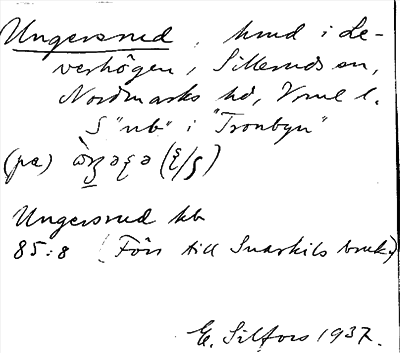 Ungersrud, hmd i Le-
verhögen, Silleruds sn,
Nordmarks hd, Vrml l.
S "nb" i "Tronbyn"
(pa)
Ungersrud hb
85:8 (Förr till Snarkils bruk)
E. Silfors 1937.